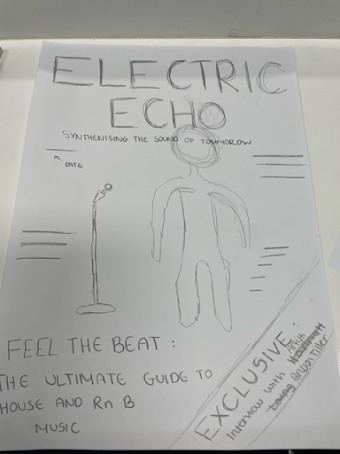 ELECTRIC
ECHO
SYNTHENISING THE SOUND OF TOMMOROW
DATE
FEEL THE BEAT :
THE ULTIMATE GUIDE TO
HOUSE AND RnB
MUSIC
EXCLUSIVE :
Interview with
Bryson Tiller